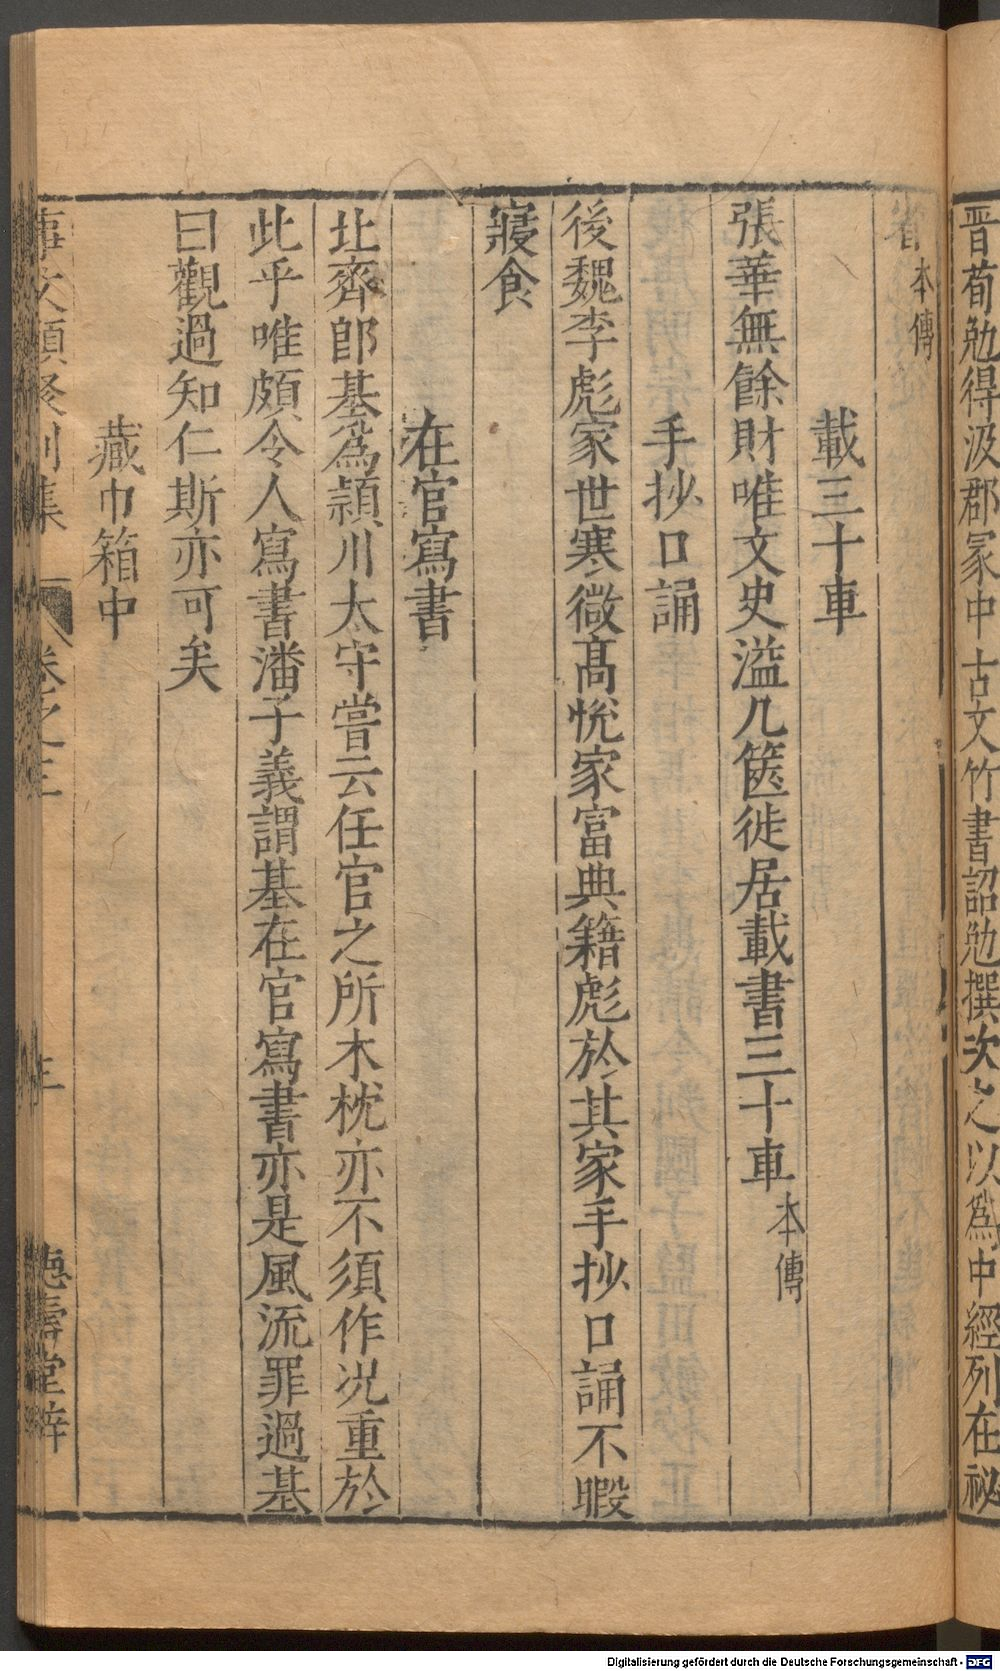 晋荀勉得汲郡冢中古文竹書詔勉撰次之以爲中經列在祕
省本傳
載三十車
張華無餘財唯文史溢几篋徙居載書三十車本傳
手抄口誦
後魏李彪家世寒微髙悅家富典籍彪於其家手抄口誦不暇
寢食
在官寫書
北齊郎基爲頴川太守嘗云任官之所木枕亦不須作况重於
此乎唯頗令人寫書潘子義謂基在官寫書亦是風流罪過基
曰觀過知仁斯亦可矣
藏巾箱中
事文類聚別集 卷之三 三 德壽堂梓
Digitalisierung gefördert durch die Deutsche Forschungsgemeinschaft - DFG